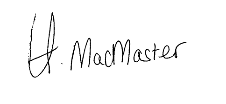 H. MacMaster